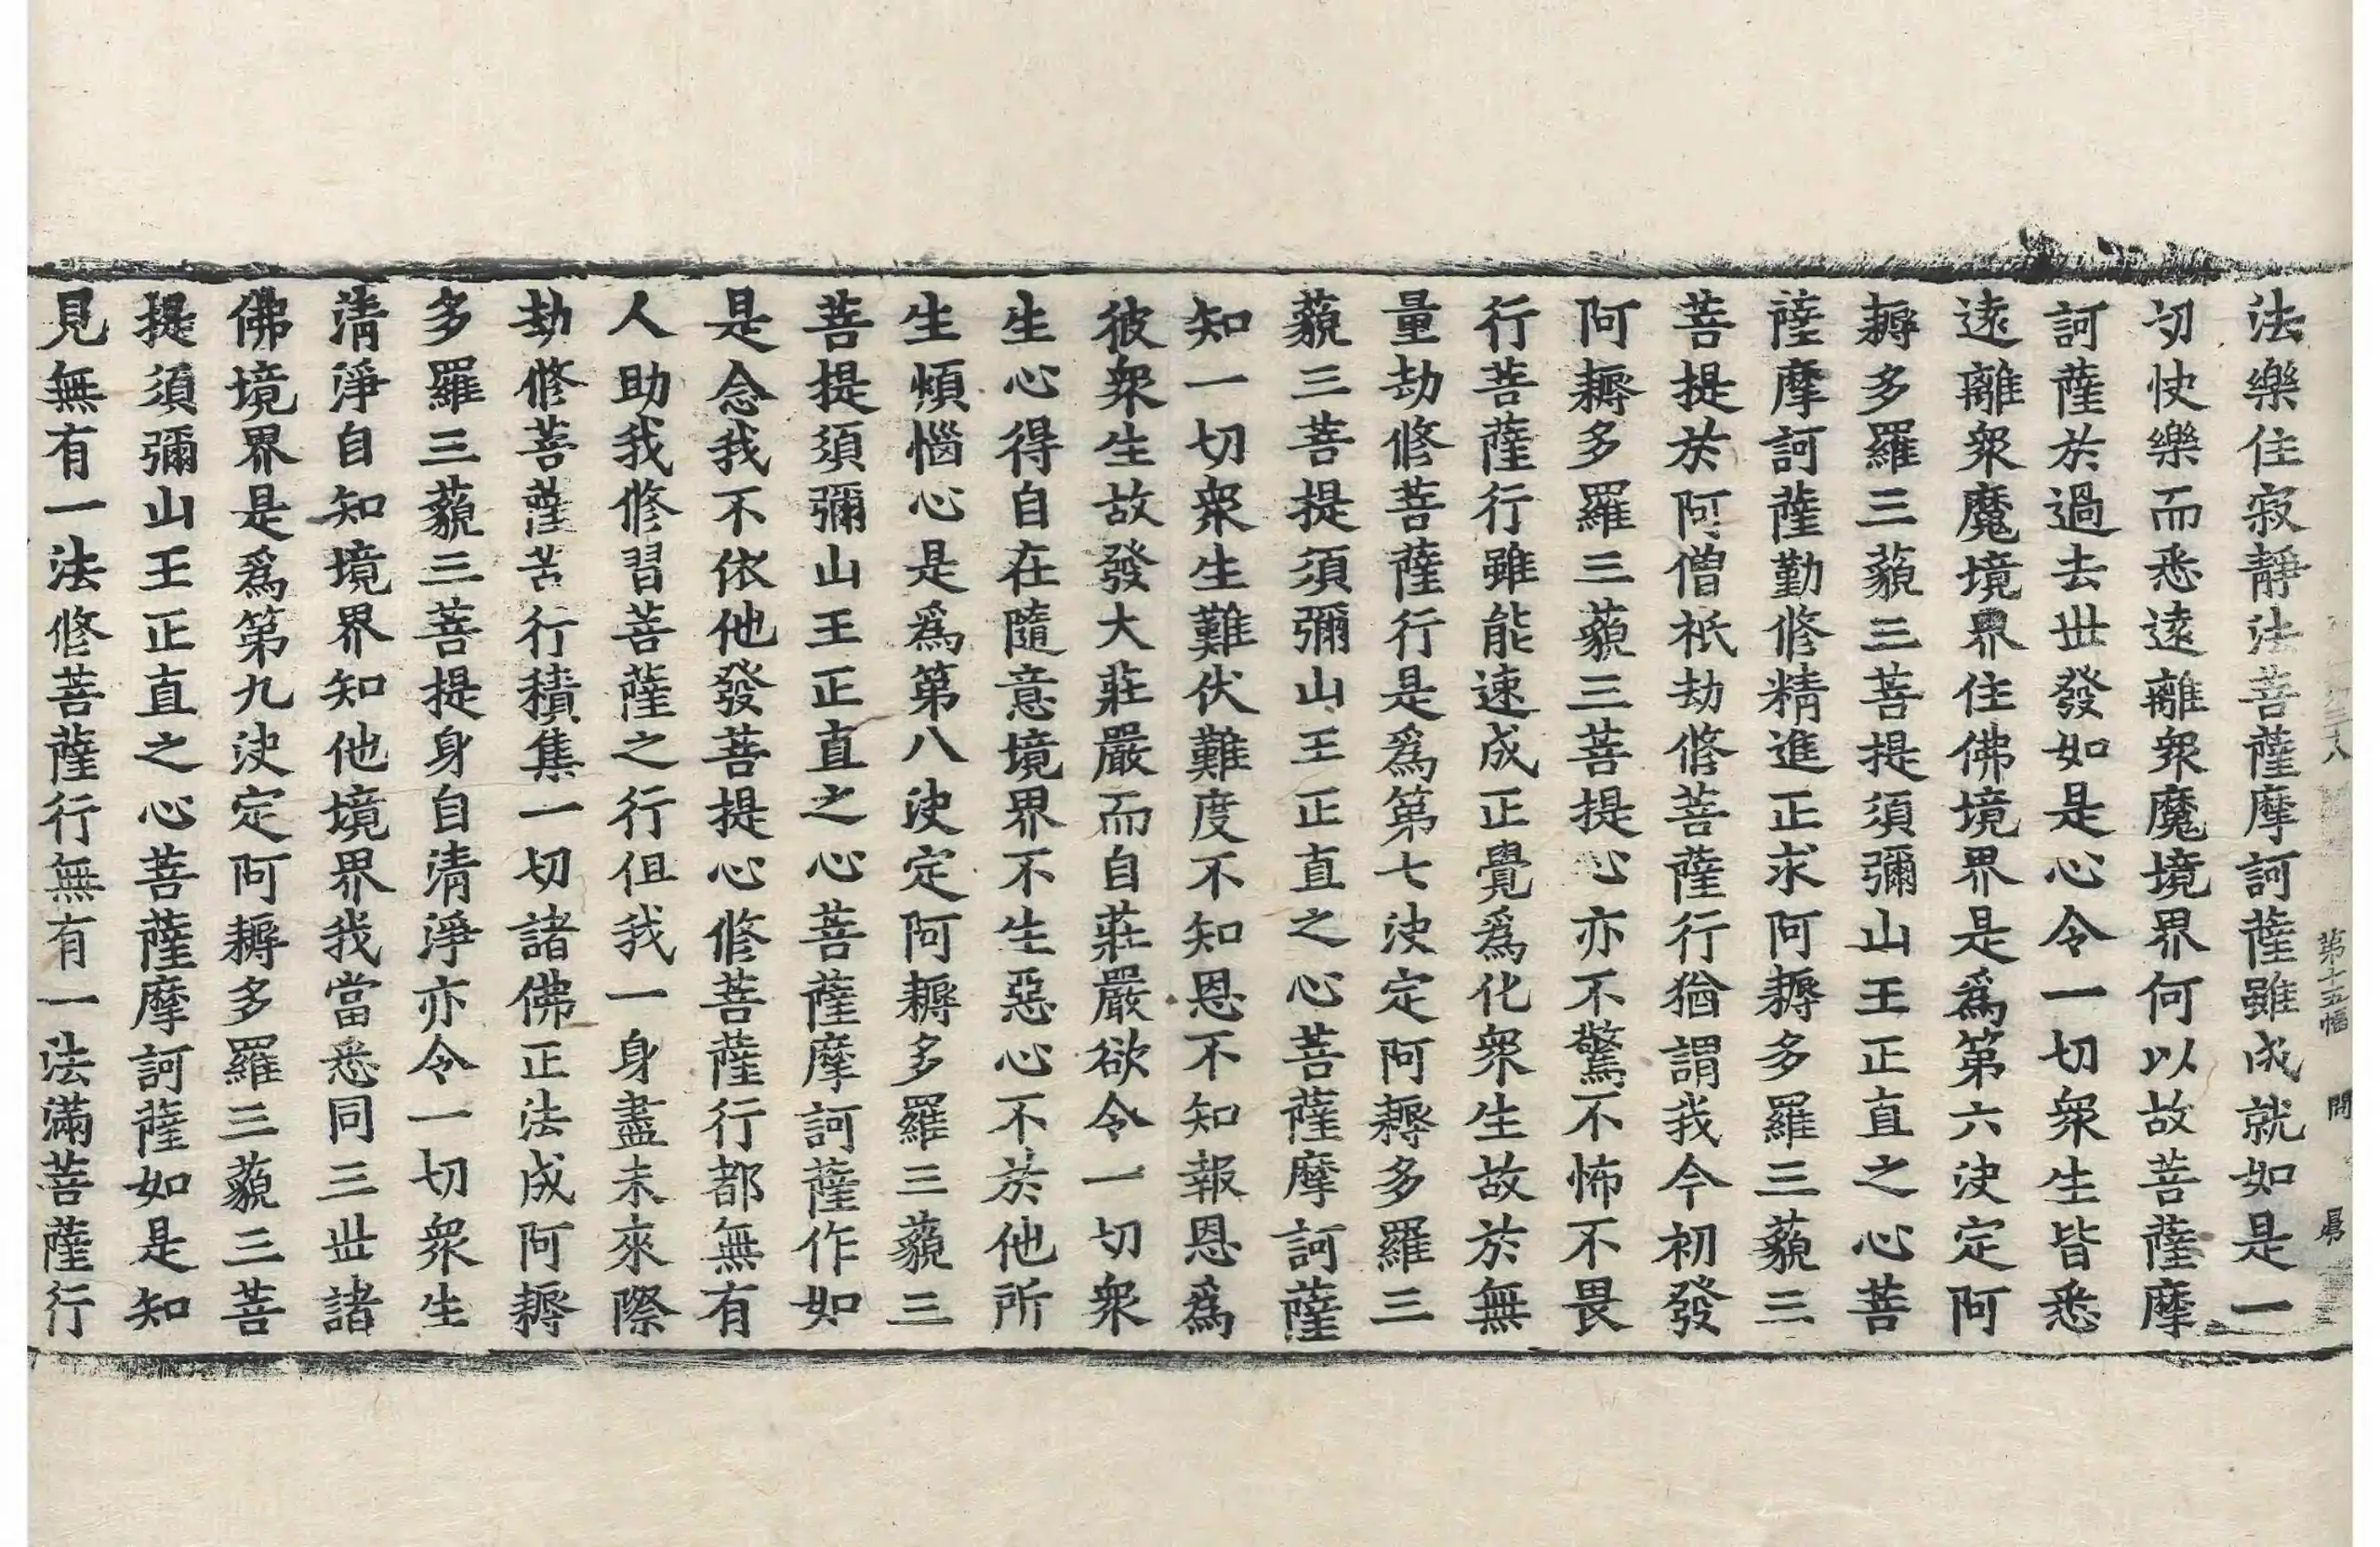 法樂住寂靜法菩薩摩訶薩雖成就如是一
切快樂而悉遠離眾魔境界何以故菩薩摩
訶薩於過去世發如是心令一切眾生皆悉
遠離眾魔境界住佛境界是爲第六決定阿
耨多羅三藐三菩提須彌山王正直之心菩
薩摩訶薩勤修精進正求阿耨多羅三藐三
菩提於阿僧祇劫修菩薩行猶謂我今初發
阿耨多羅三藐三菩提心亦不驚不怖不畏
行菩薩行雖能速成正覺爲化眾生故於無
量劫修菩薩行是爲第七決定阿耨多羅三
藐三菩提須彌山王正直之心菩薩摩訶薩
知一切眾生難伏難度不知恩不知報恩爲
彼眾生故發大莊嚴而自莊嚴欲令一切眾
生心得自在隨意境界不生惡心不於他所
生煩惱心是爲第八決定阿耨多羅三藐三
菩提須彌山王正直之心菩薩摩訶薩作如
是念我不依他發菩提心修菩薩行都無有
人助我修習菩薩之行但我一身盡未來際
劫修菩薩苦行積集一切諸佛正法成阿耨
多羅三藐三菩提身自清淨亦令一切眾生
清淨自知境界知他境界我當悉同三世諸
佛境界是爲第九決定阿耨多羅三藐三菩
提須彌山王正直之心菩薩摩訶薩如是知
見無有一法修菩薩行無有一法滿菩薩行